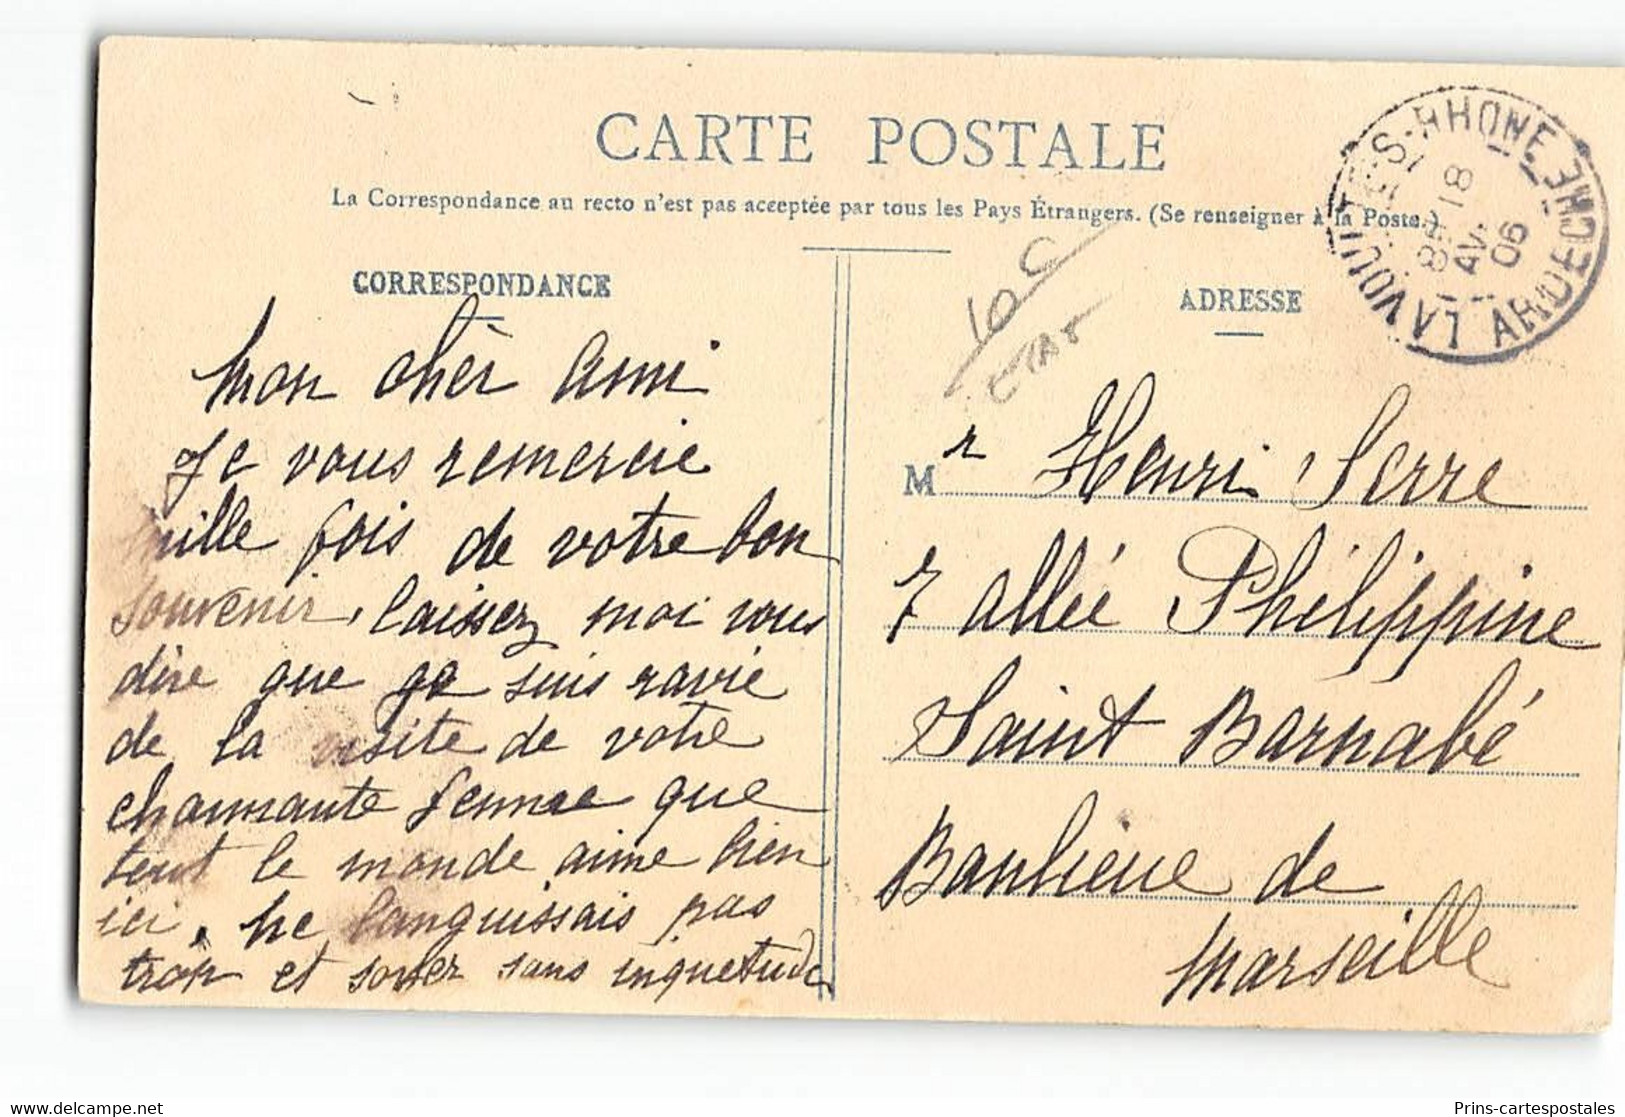 CARTE POSTALE
La Correspondance au recto n'est pas acceptée par tous les Pays Étrangers. (Se renseigner à la Poste.)
CORRESPONDANCE
mon chèr ami
Je vous remercie
mille fois de votre bon
souvenir, laissez moi vous
dire que je suis ravie
de la visite de votre
charmante femme que
tout le monde aime bien
ici, ne languissais pas
trop et soyer sans inquetude
ADRESSE
Mr Henri Serre
7 allée Philippine
Saint Barnabé
Banlieue de
Marseille
LA VOULTE-S-RHONE
18
AVR
06
ARDECHE
Prins-cartespostales